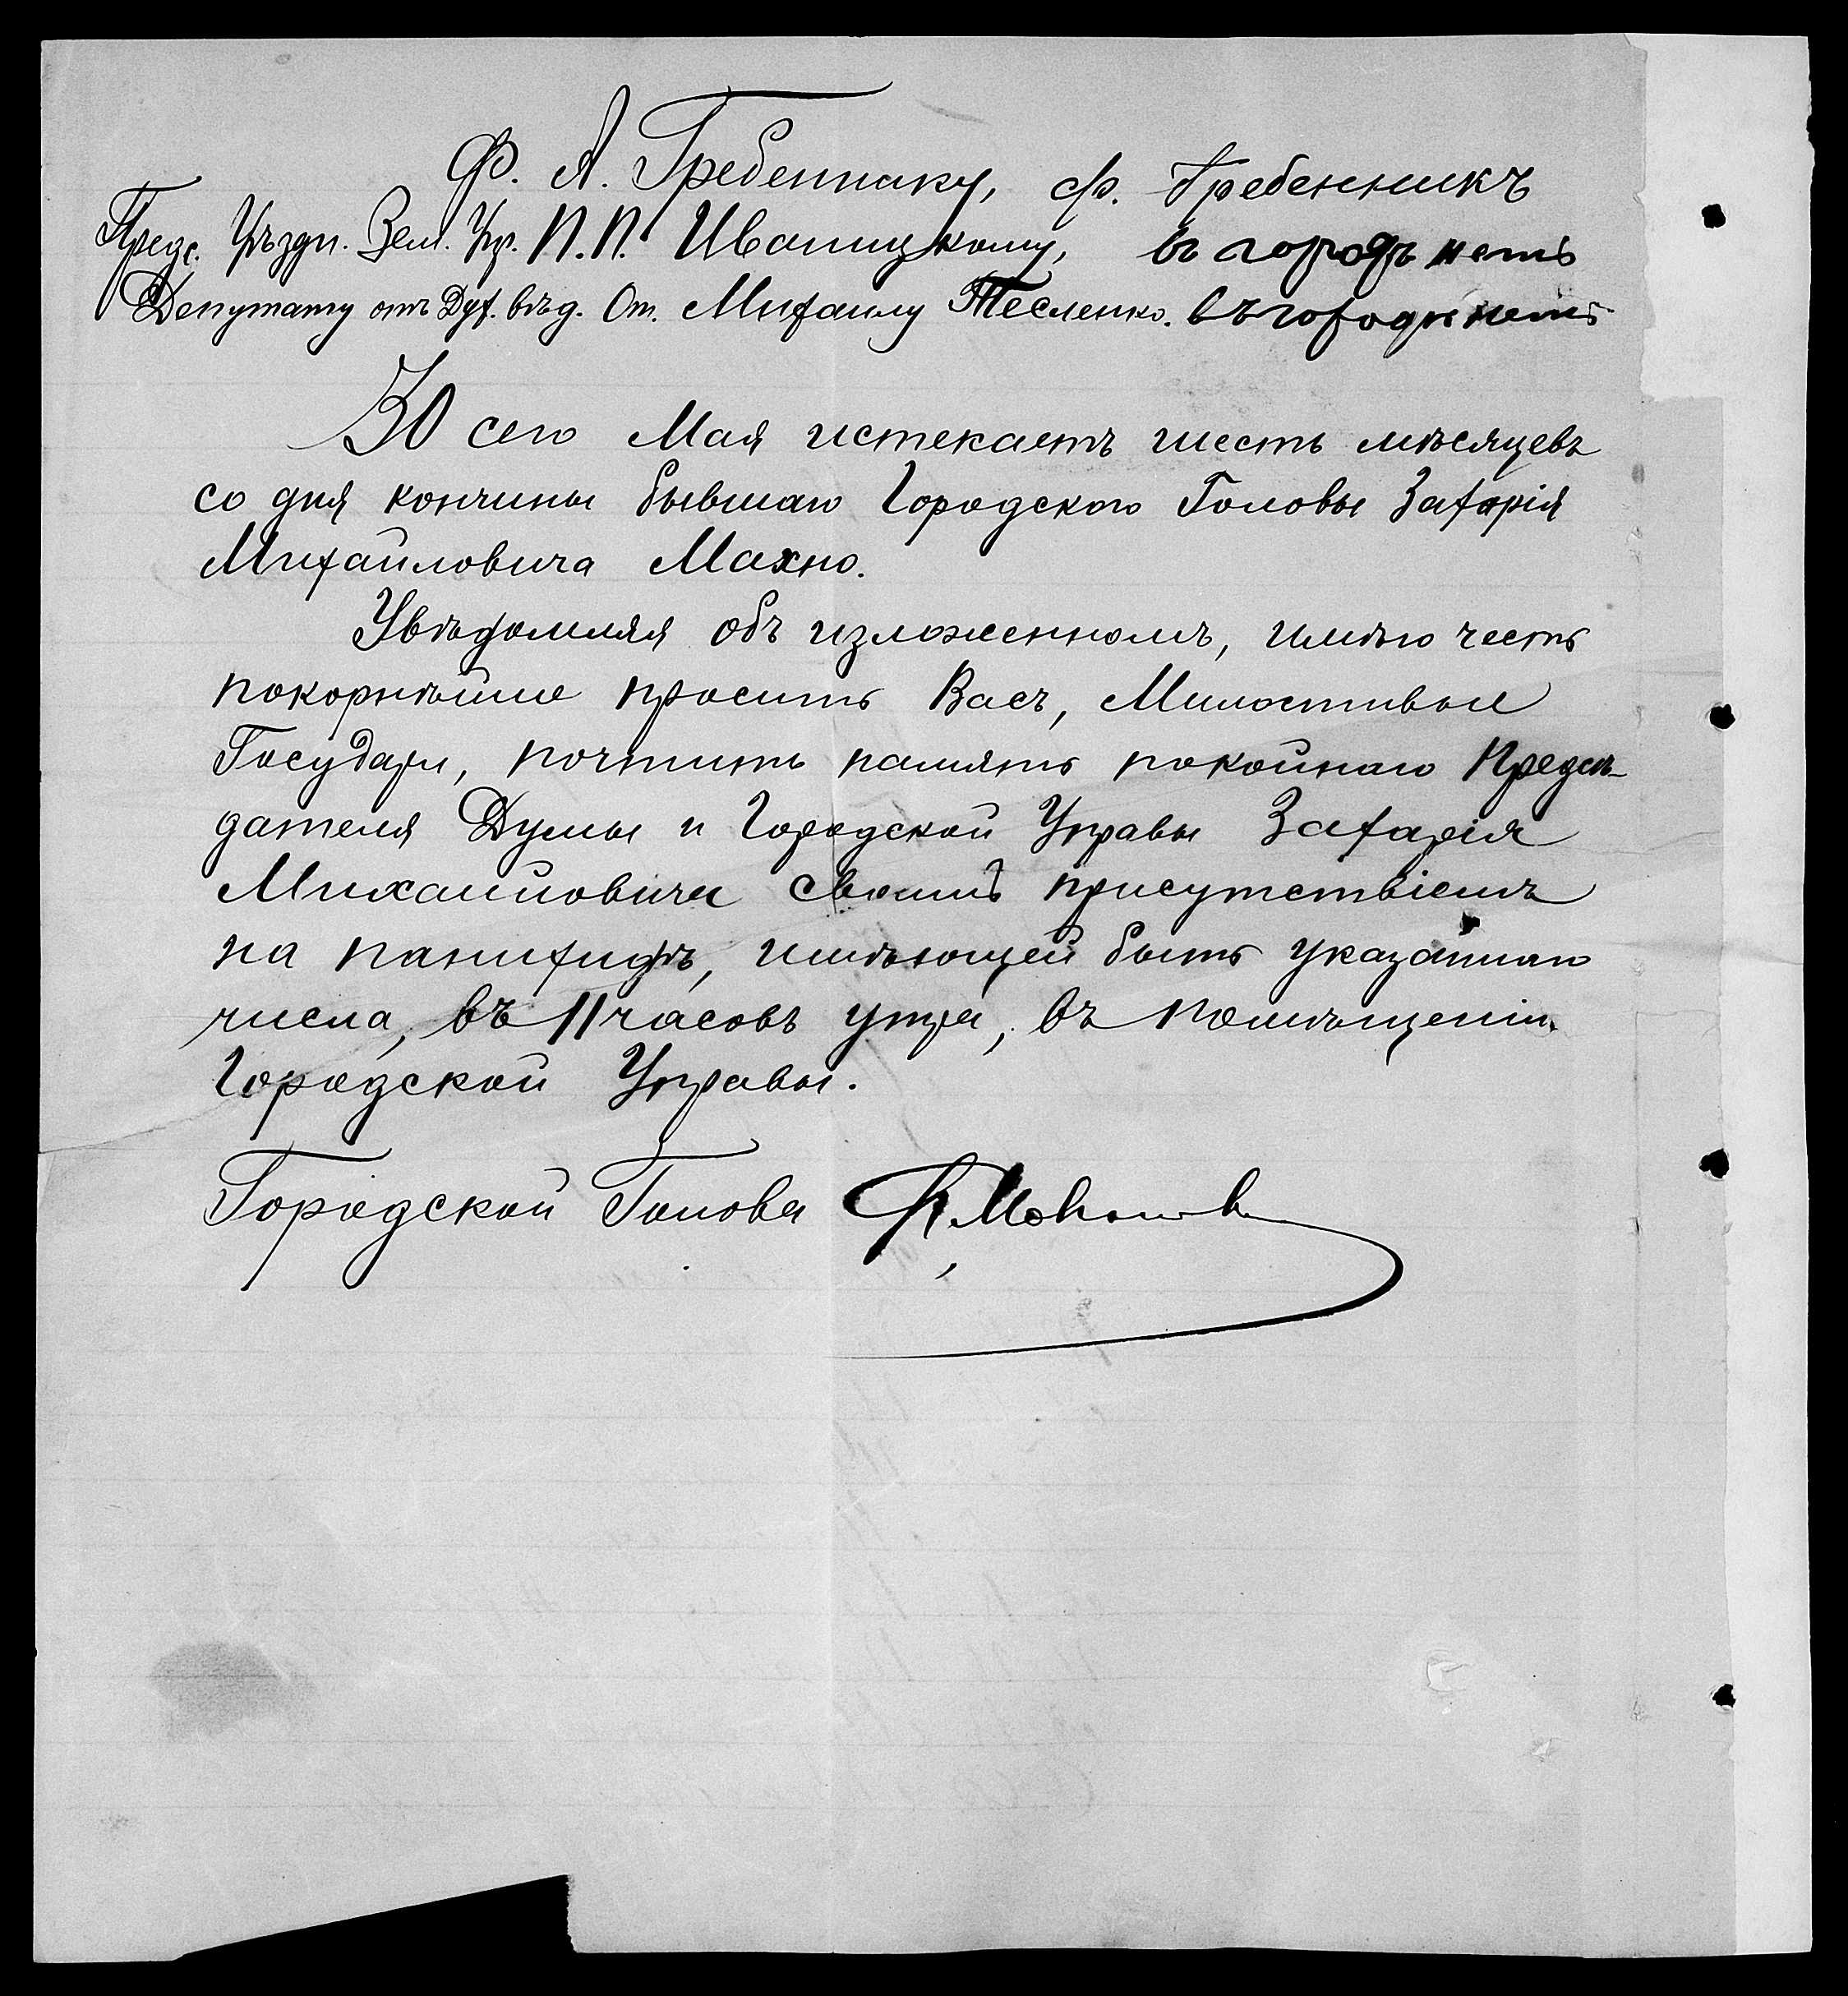 Ф. А. Гребеннику, Ф. Гребенникъ
Предс. Уѣздн. Зем. Упр. П. П. Иваницкому, въ городѣ нетъ
Депутату отъ Дух. вѣд. От. Михаилу Тесленко. въ городе нетъ
30 сего Мая истекаетъ шесть мѣсяцевъ
со дня кончины бывшаго Городского Головы Захарія
Михайловича Махно.
Увѣдомляя объ изложенномъ, имѣю честь
покорнѣйше просить Васъ, Милостивые
Государи, почтить память покойнаго Предсѣ-
дателя Думы и Городской Управы Захарія
Михайловича своимъ присутствіемъ
на панихидѣ, имѣющей быть указаннаго
числа, въ 11 часовъ утра, въ помѣщеніи
Городской Управы.
Городской Голова